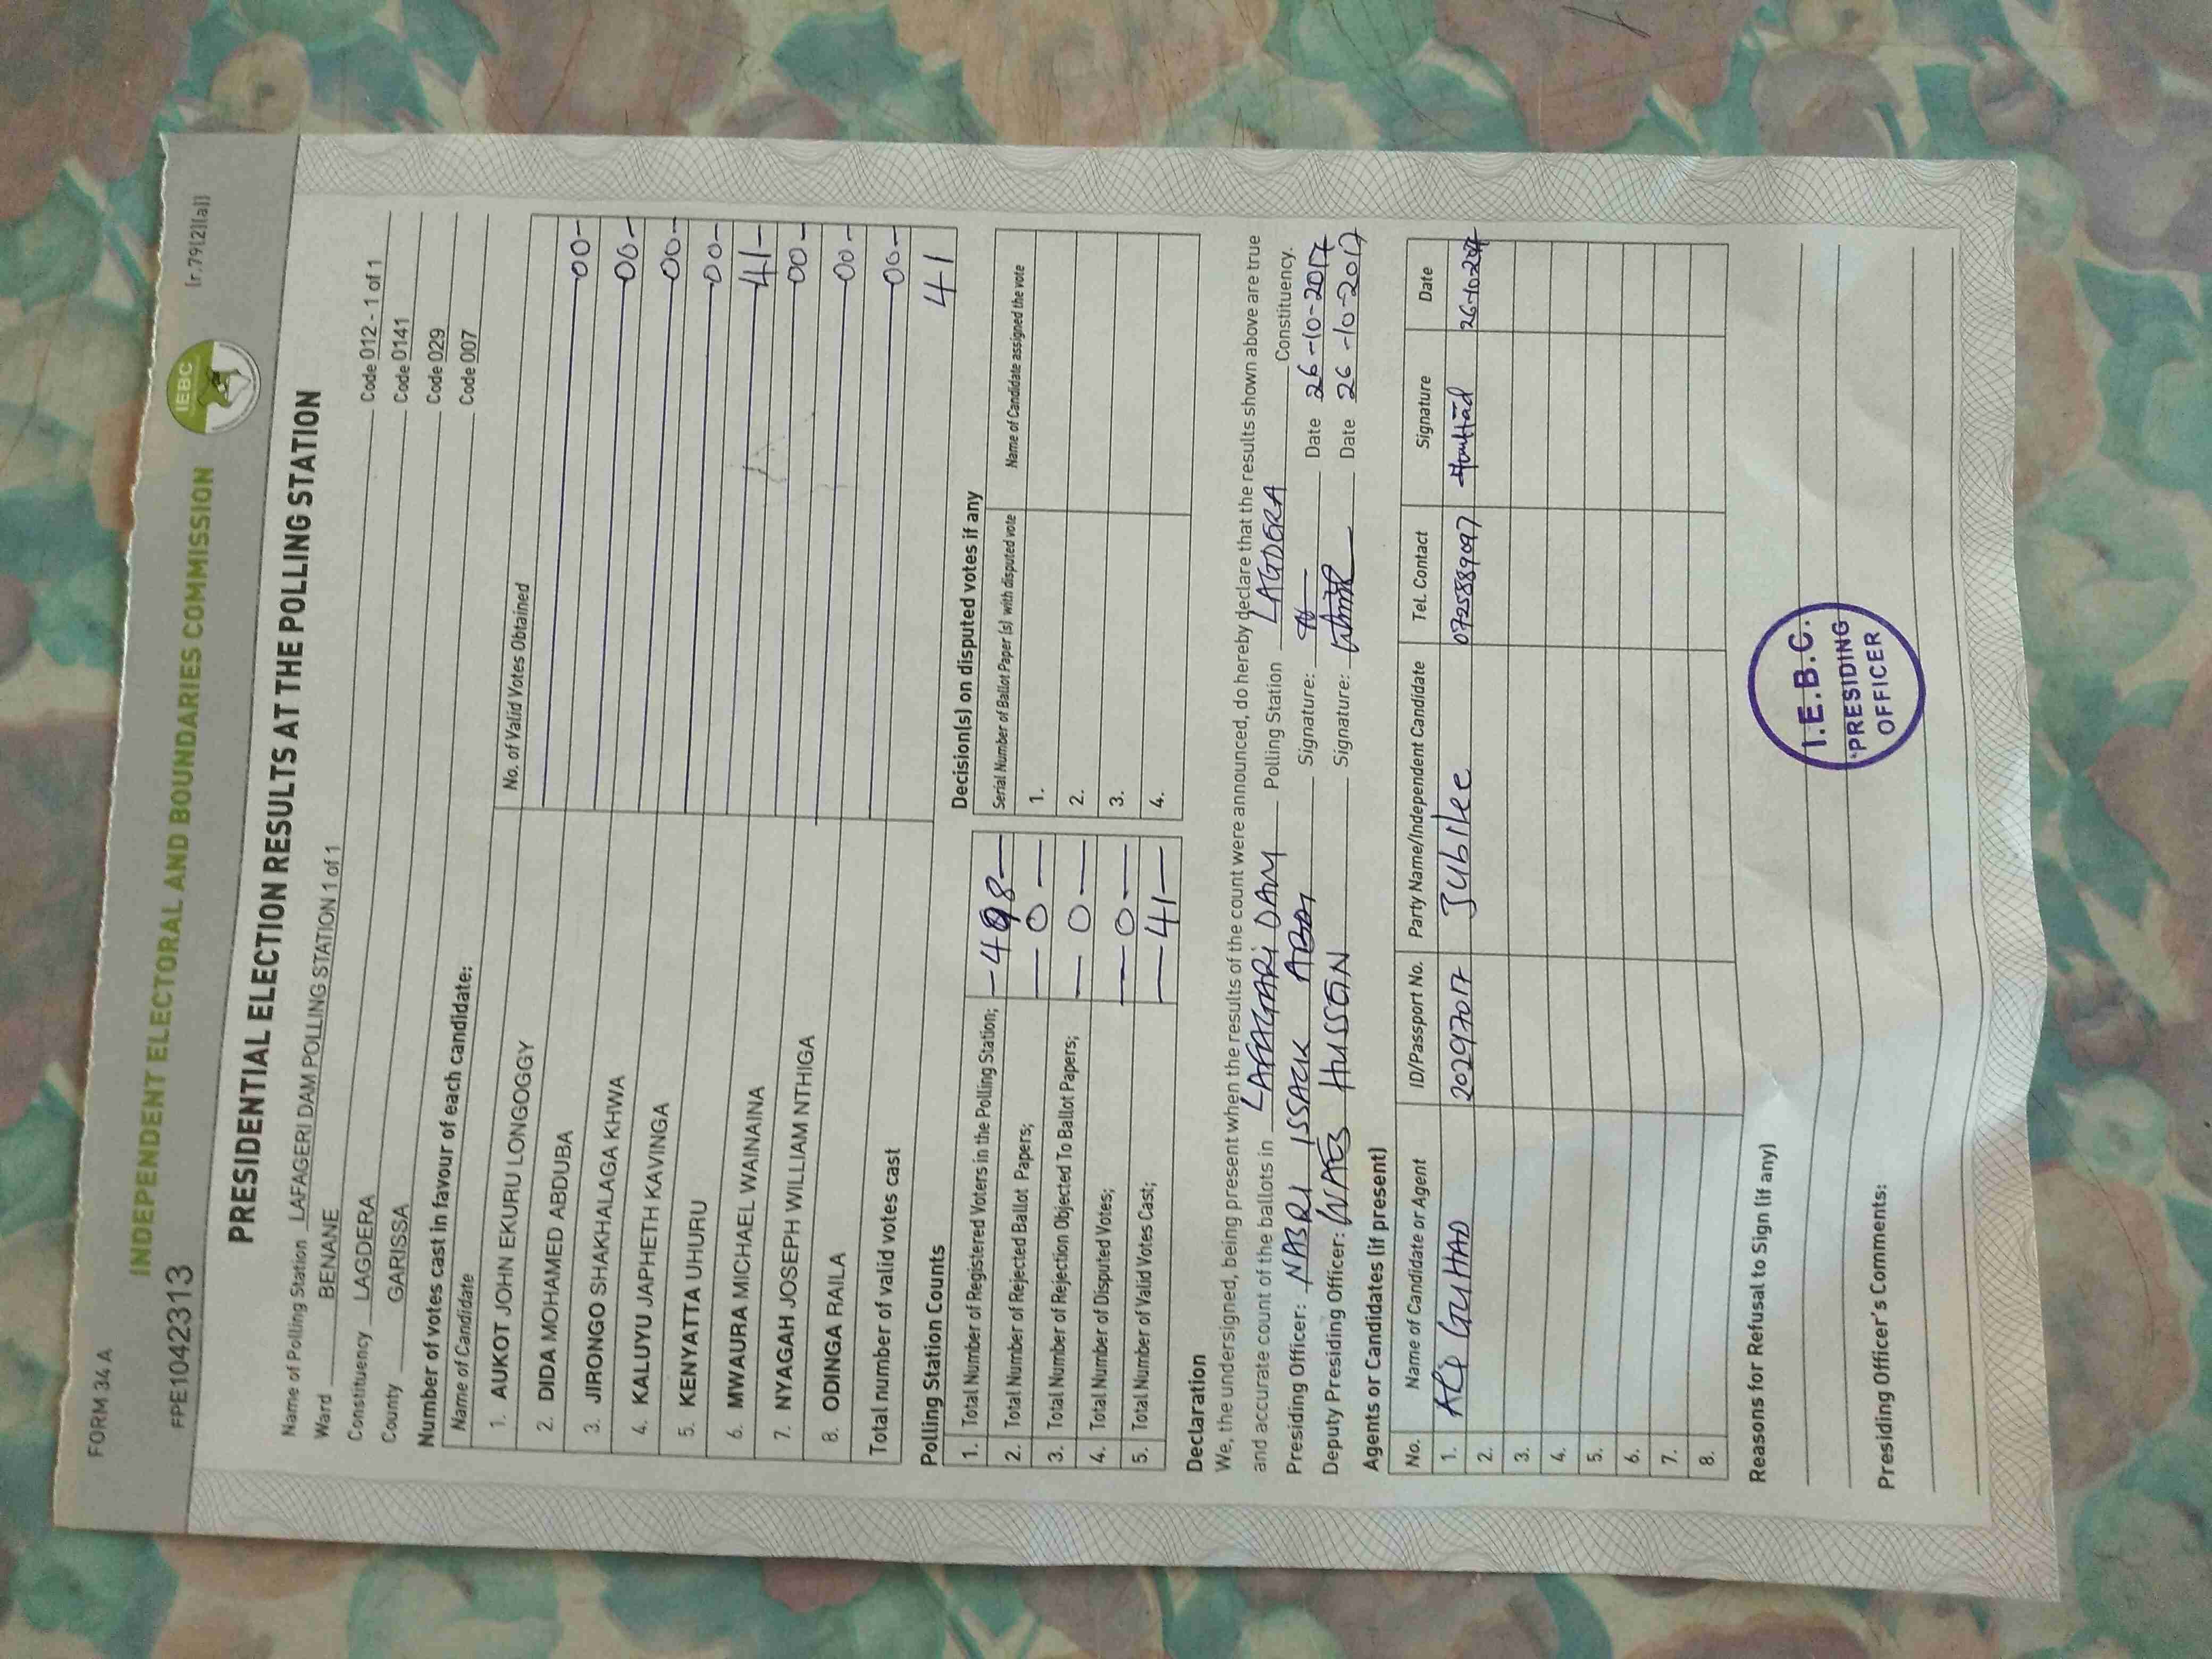 FORM 34 A
[r.79(2)(a)]
IEBC
INDEPENDENT ELECTORAL AND BOUNDARIES COMMISSION
FPE1042313
PRESIDENTIAL ELECTION RESULTS AT THE POLLING STATION
Name of Polling Station LAFAGERI DAM POLLING STATION 1 of 1 Code 012 - 1 of 1
Ward BENANE Code 0141
Constituency LAGDERA Code 029
County GARISSA Code 007
Number of votes cast in favour of each candidate:
Name of Candidate No. of Valid Votes Obtained
1. AUKOT JOHN EKURU LONGOGGY 00-
2. DIDA MOHAMED ABDUBA 00-
3. JIRONGO SHAKHALAGA KHWA 00-
4. KALUYU JAPHETH KAVINGA 00-
5. KENYATTA UHURU 41-
6. MWAURA MICHAEL WAINAINA 00-
7. NYAGAH JOSEPH WILLIAM NTHIGA 00-
8. ODINGA RAILA 00-
Total number of valid votes cast 41
Polling Station Counts
1. Total Number of Registered Voters in the Polling Station; -498-
2. Total Number of Rejected Ballot Papers; -0-
3. Total Number of Rejection Objected To Ballot Papers; -0-
4. Total Number of Disputed Votes; -0-
5. Total Number of Valid Votes Cast; -41-
Decision(s) on disputed votes if any
Serial Number of Ballot Paper (s) with disputed vote Name of Candidate assigned the vote
1.
2.
3.
4.
Declaration
We, the undersigned, being present when the results of the count were announced, do hereby declare that the results shown above are true
and accurate count of the ballots in LAFAGARI DAM Polling Station LAGDERA Constituency.
Presiding Officer: NABRI ISSACK ABDI Signature: Date 26-10-2017
Deputy Presiding Officer: HUSSEN Signature: Date 26-10-2017
Agents or Candidates (if present)
No. Name of Candidate or Agent ID/Passport No. Party Name/Independent Candidate Tel. Contact Signature Date
1. GUHAD 20297017 Jubilee 0725889097 26-10-2017
2.
3.
4.
5.
6.
7.
8.
Reasons for Refusal to Sign (if any)
Presiding Officer's Comments:
I.E.B.C.
PRESIDING
OFFICER